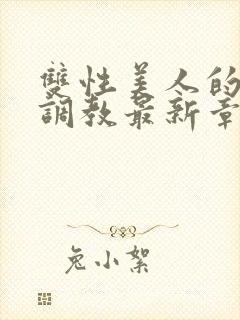 雙性美人的
調教最新章
兔小絮